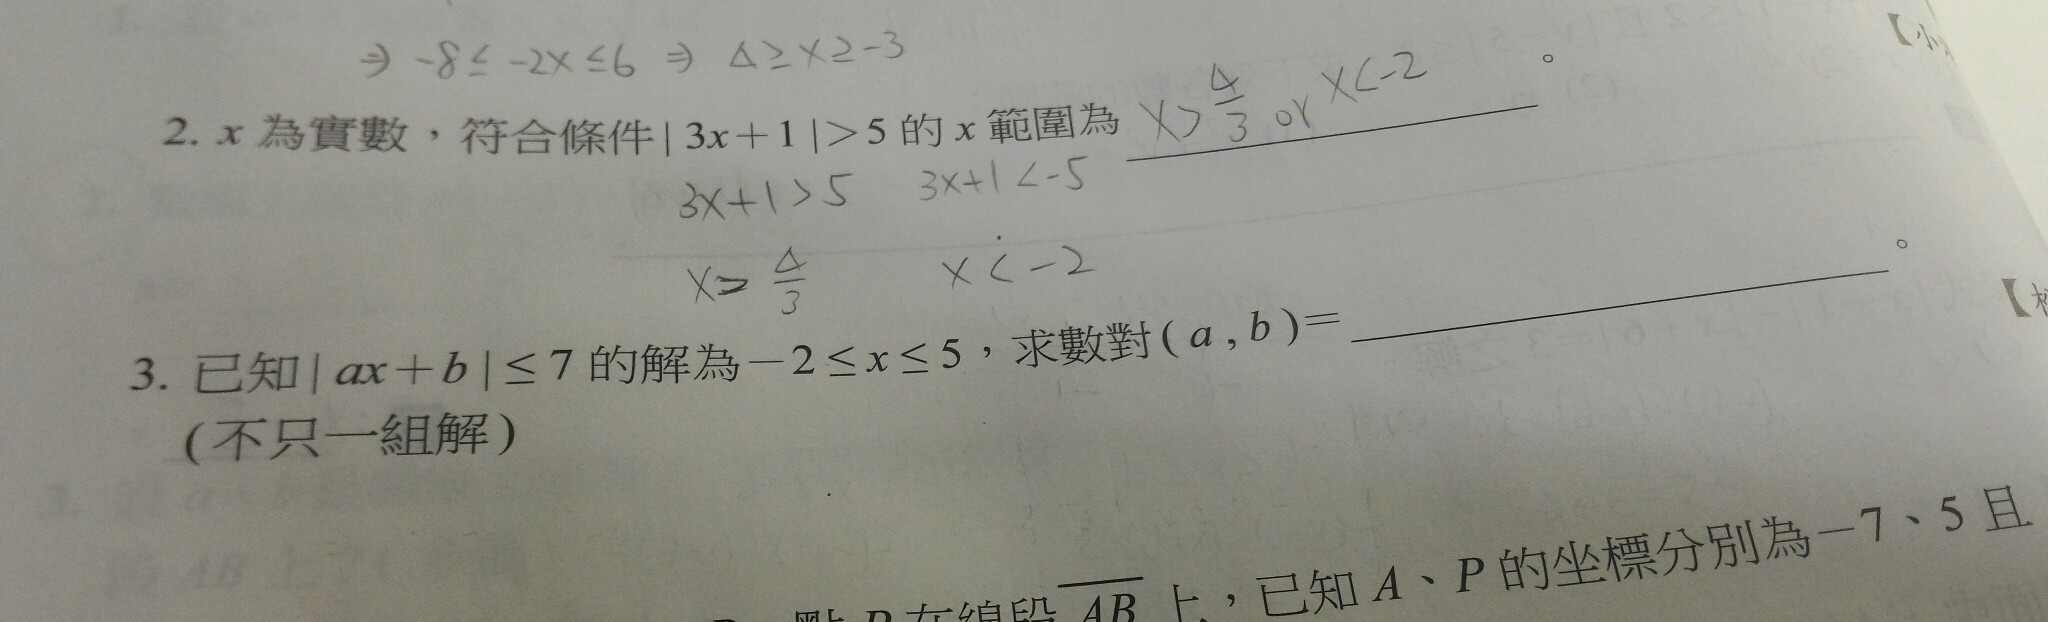 ⇒ -8 ≤ -2x ≤ 6 ⇒ 4 ≥ x ≥ -3
2. x 為實數，符合條件 | 3x + 1 | > 5 的 x 範圍為 x > 4/3 or x < -2 。
3x+1 > 5 3x+1 < -5
x > 4/3 x < -2
3. 已知 | ax + b | ≤ 7 的解為 -2 ≤ x ≤ 5，求數對 ( a , b ) = 。
(不只一組解)
上，已知 A、P 的坐標分別為 -7、5 且